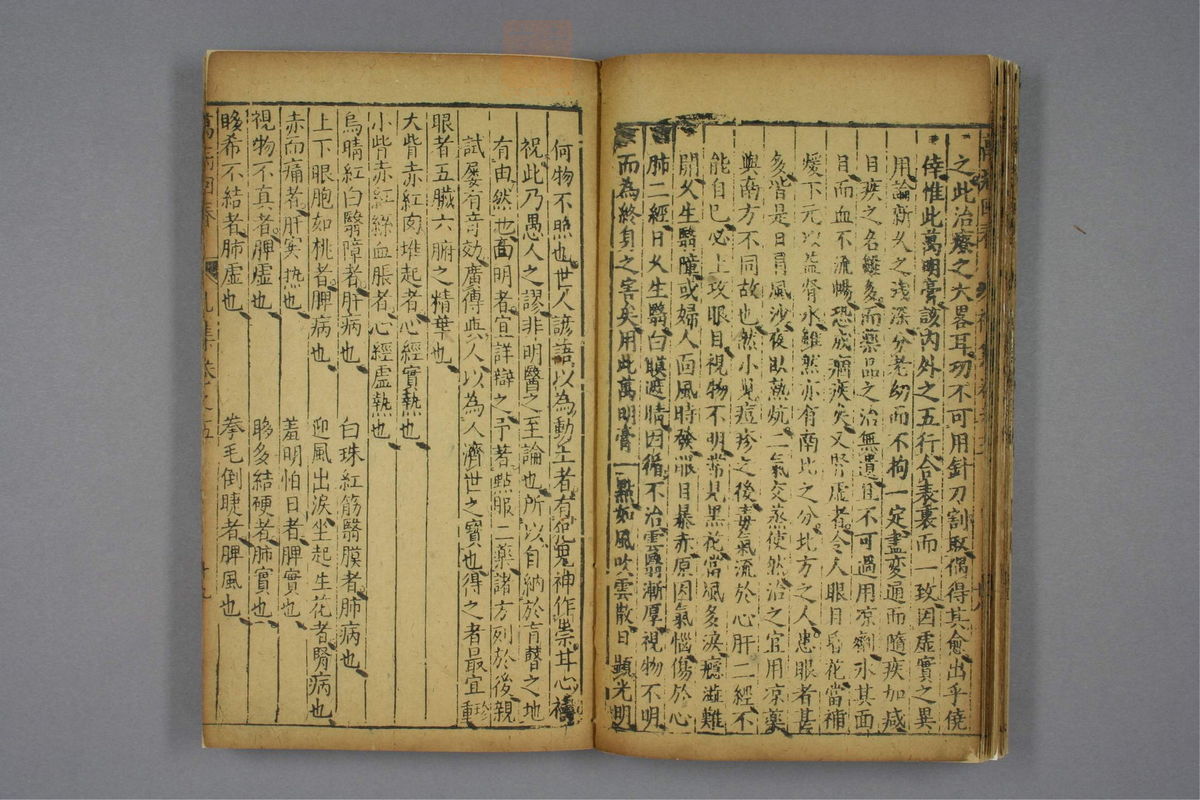 之此治療之大畧耳切不可用針刀割取偶得其愈出乎僥
倖惟此萬明膏該內外之五行合表裏而一致因虛實之異
用論新久之淺深分老幼而不拘一定盡变通而隨疾加减
目疾之名雖多而藥品之治無遺且不可過用凉劑水其面
目而血不流暢恐成痼疾矣又腎虛者令人眼目昏花當補
煖下元以益腎水雖然亦有南北之分北方之人患眼者甚
多皆是日冐風沙夜臥熱炕二氣交蒸使然治之宜用凉藥
與南方不同故也然小兒痘疹之後毒氣流於心肝二經不
能自已必上攻眼目視物不明常見黑花當風多淚癮澁難
開久生翳障或婦人面風時發眼目暴赤原因氣惱傷於心
肺二經日久生翳白膜遮睛因循不治雲翳漸厚視物不明
而為終身之害矣用此萬明膏一點如風吹雲散日顯光明
何物不照也世人諺語以為動土者有犯鬼神作祟甘心禱
祝此乃愚人之謬非明醫之至論也所以自納於盲瞽之地
有由然也高明者宜詳辯之予著點服二藥諸方列於後親
試屢有奇効廣傳與人以為人濟世之寶也得之者最宜珍重
眼者五臟六腑之精華也
大眥赤紅肉堆起者心經實熱也
小眥赤紅絲血脹者心經虛熱也
烏睛紅白翳障者肝病也 白珠紅筋翳膜者肺病也
上下眼胞如桃者脾病也 迎風出淚坐起生花者腎病也
赤而痛者肝实热也 羞明怕日者脾實也
視物不真者脾虛也 眵多結硬者肺實也
眵希不結者肺虛也 拳毛倒睫者脾風也